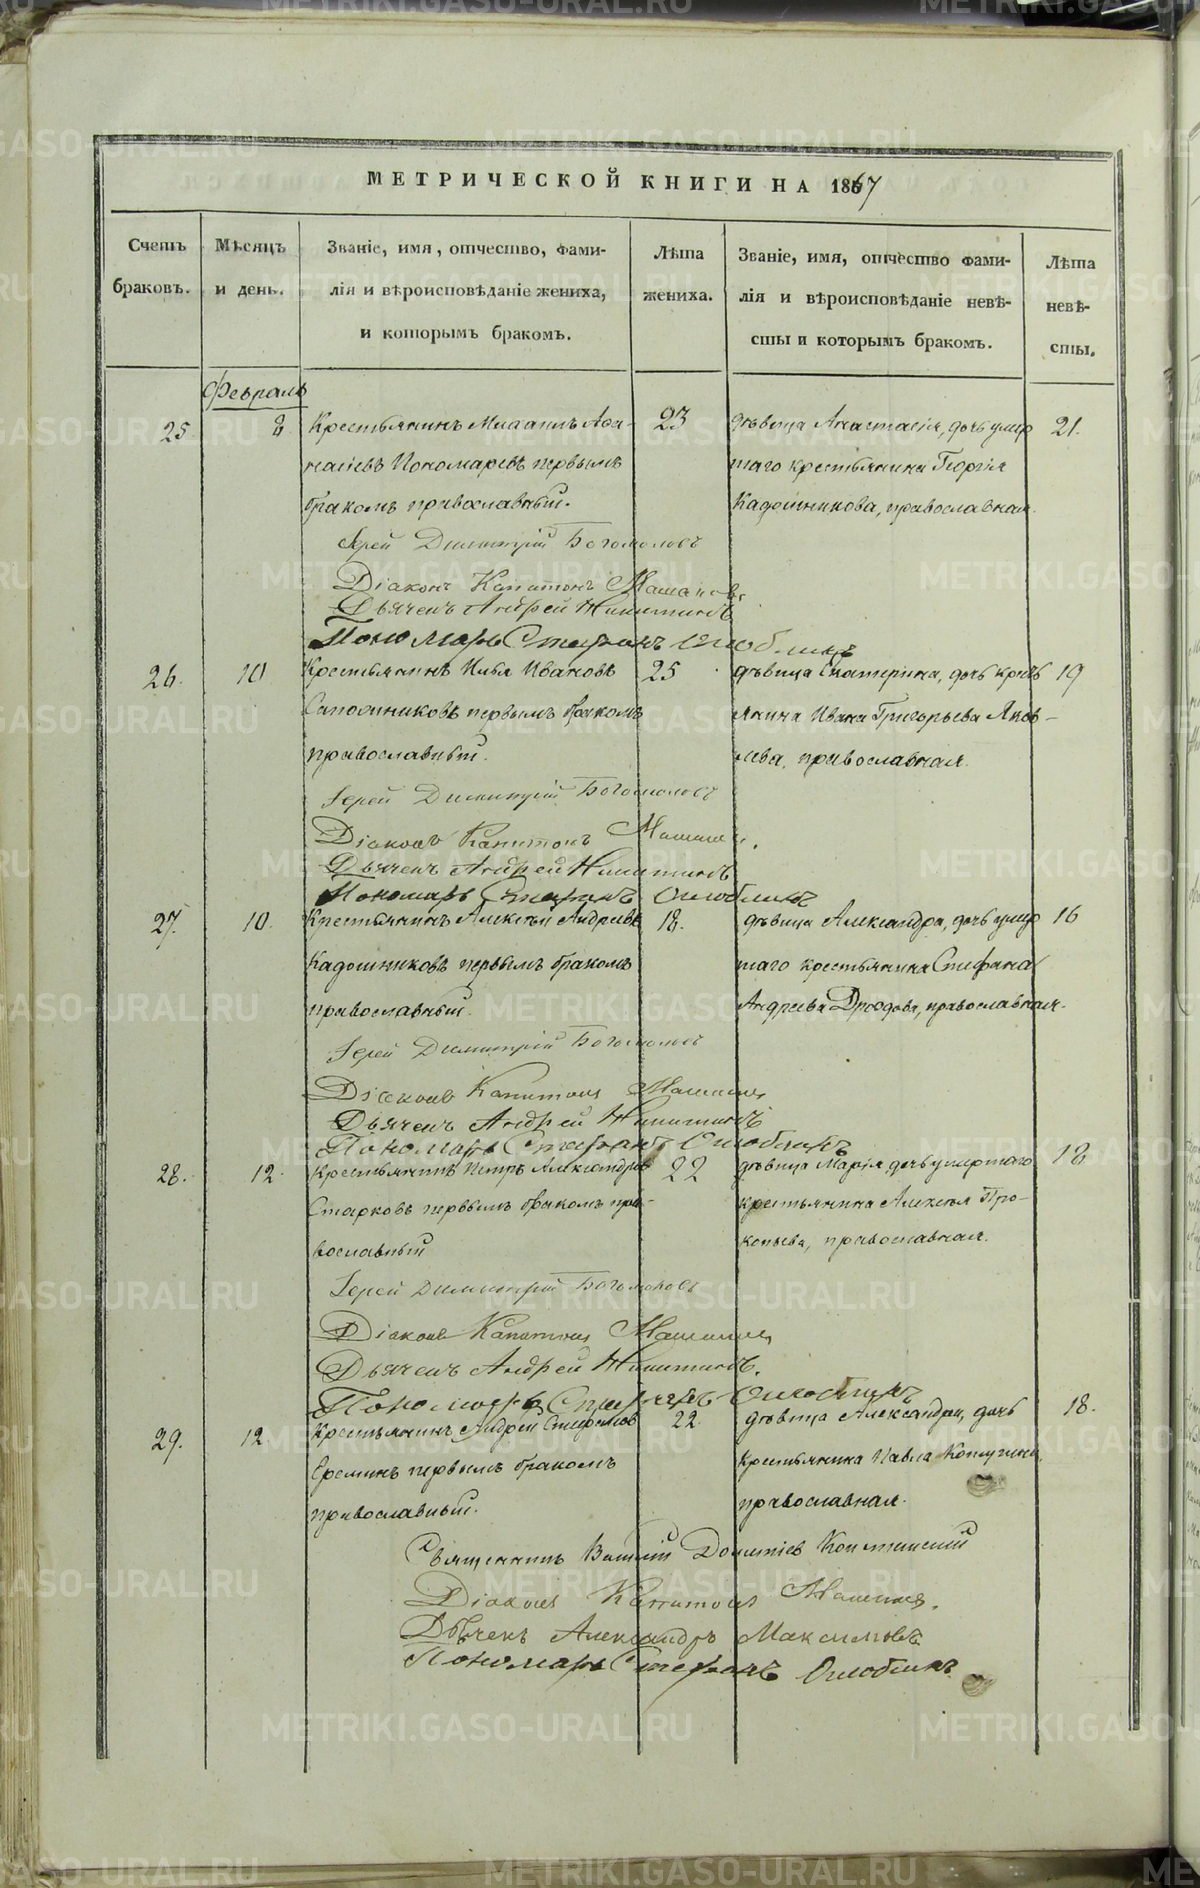 МЕТРИЧЕСКОЙ КНИГИ НА 1867
Счетъ браковъ.
Мѣсяцъ и день.
Званіе, имя, отчество, фами-
лія и вѣроисповѣданіе жениха,
и которымъ бракомъ.
Лѣта жениха.
Званіе, имя, отчество фами-
лія и вѣроисповѣданіе невѣ-
сты и которымъ бракомъ.
Лѣта невѣ-
сты.
Февраль
25 8 Крестьянинъ Михаилъ Афа- 23 дѣвица Анастасія, дочь умер 21.
насіевъ Пономаревъ первымъ таго крестьянина Георгія
бракомъ православный. Кадошникова, православная.
Іерей Димитрій Богомоловъ
Діаконъ Капитонъ
Дьячекъ Андрей Никитинъ
Пономарь Стефанъ Оглоблинъ
26. 10 Крестьянинъ Илья Ивановъ 25 дѣвица Екатерина, дочь крест 19
Сапожниковъ первымъ бракомъ янина Ивана Григорьева Яков-
православный. лева, православная.
Іерей Димитрій Богомоловъ
Діаконъ Капитонъ
Дьячекъ Андрей Никитинъ
Пономарь Стефанъ Оглоблинъ
27. 10. Крестьянинъ Алексѣй Андреевъ 18. дѣвица Александра, дочь умер 16
Кадошниковъ первымъ бракомъ таго крестьянина Стефана
православный. Андреева Дроздова, православная.
Іерей Димитрій Богомоловъ
Діаконъ Капитонъ
Дьячекъ Андрей Никитинъ
Пономарь Стефанъ Оглоблинъ
28. 12. Крестьянинъ Петръ Александровъ 22 дѣвица Марія, дочь умершаго 18
Старковъ первымъ бракомъ пра- крестьянина Алексѣя Про-
вославный копьева, православная.
Іерей Димитрій Богомоловъ
Діаконъ Капитонъ
Дьячекъ Андрей Никитинъ.
Пономарь Стефанъ Оглоблинъ
29. 12 Крестьянинъ Андрей Стефановъ 22. дѣвица Александра, дочь 18.
Ереминъ первымъ бракомъ крестьянина Павла
православный. православная.
Священникъ
Діаконъ Капитонъ
Дьячекъ Александръ Максимовъ
Пономарь Стефанъ Оглоблинъ.
METRIKI.GASO-URAL.RU